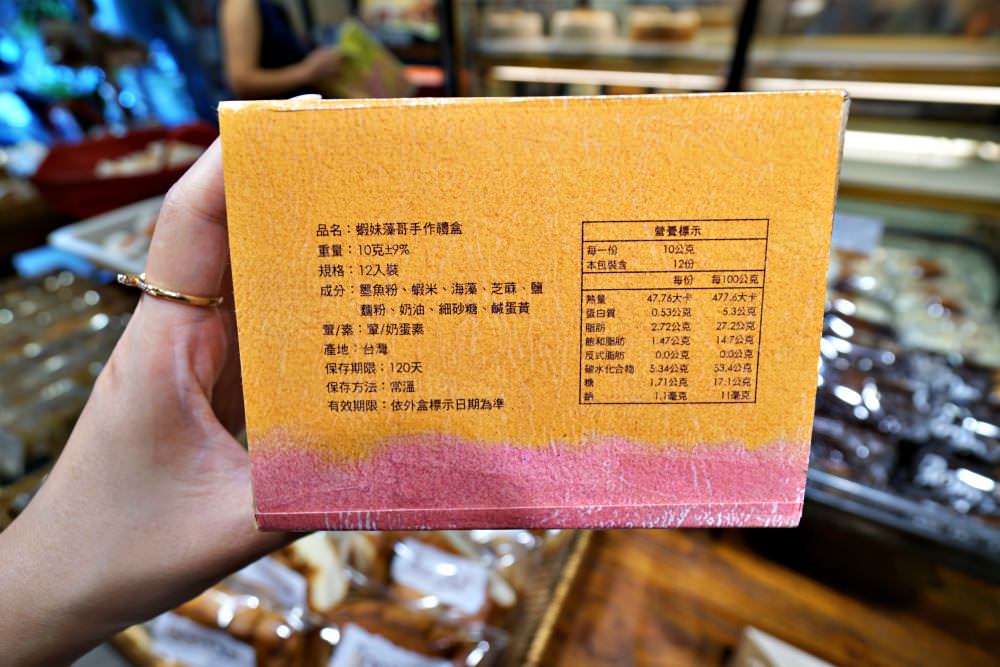 品名：蝦妹藻哥手作禮盒
重量：10克±9%
規格：12入裝
成分：墨魚粉、蝦米、海藻、芝麻、鹽
麵粉、奶油、細砂糖、鹹蛋黃
葷/素：葷/奶蛋素
產地：台灣
保存期限：120天
保存方法：常溫
有效期限：依外盒標示日期為準
營養標示
每一份 10公克
本包裝含 12份
每份 每100公克
熱量 47.76大卡 477.6大卡
蛋白質 0.53公克 5.3公克
脂肪 2.72公克 27.2公克
飽和脂肪 1.47公克 14.7公克
反式脂肪 0.0公克 0.0公克
碳水化合物 5.34公克 53.4公克
糖 1.71公克 17.1公克
鈉 1.1毫克 11毫克